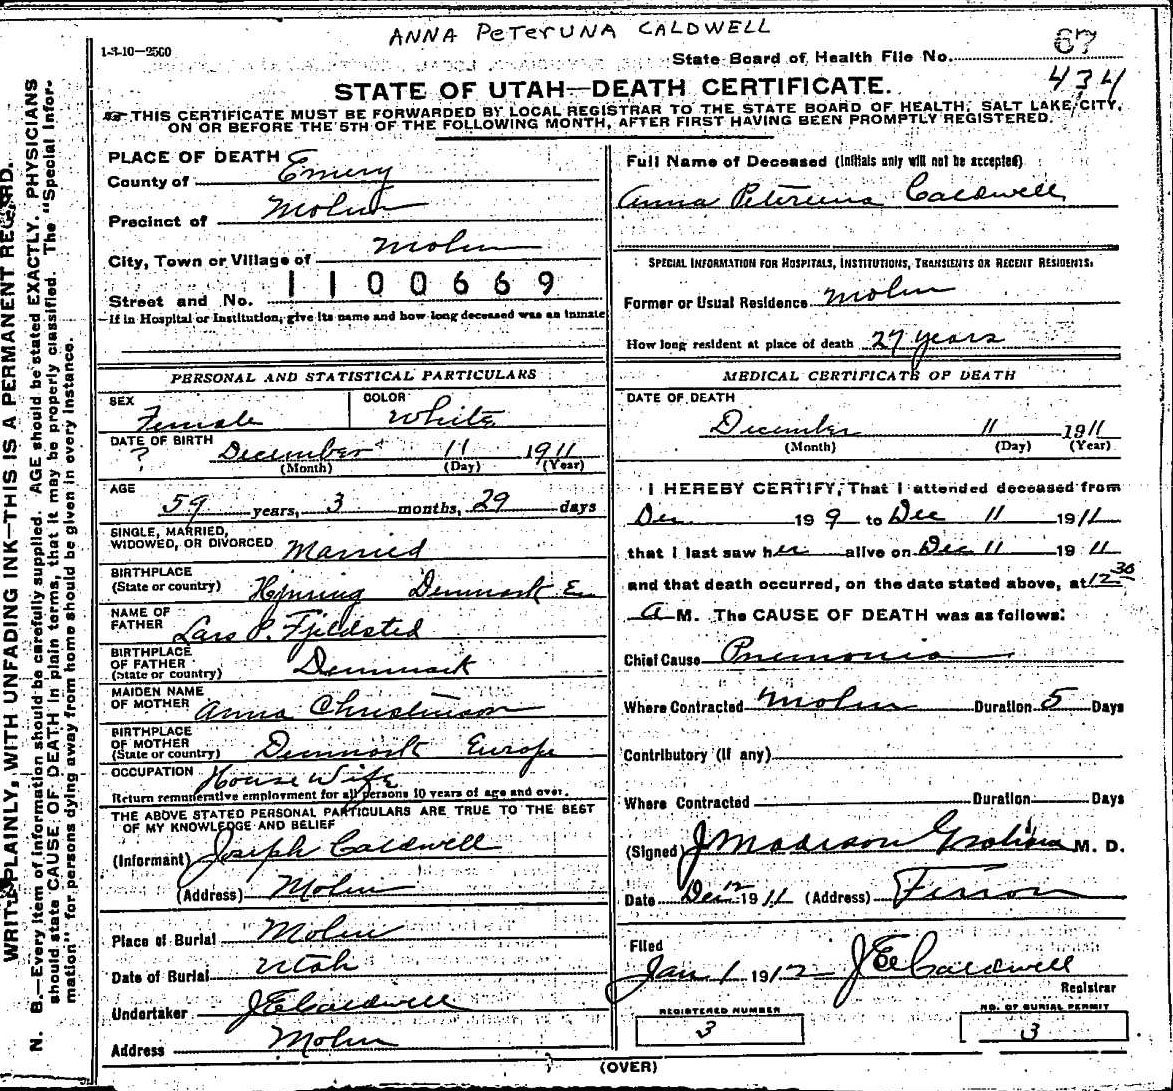 ANNA PETERUNA CALDWELL
1-3-10—2500
State Board of Health File No. 67
434
STATE OF UTAH—DEATH CERTIFICATE.
THIS CERTIFICATE MUST BE FORWARDED BY LOCAL REGISTRAR TO THE STATE BOARD OF HEALTH, SALT LAKE CITY,
ON OR BEFORE THE 5TH OF THE FOLLOWING MONTH, AFTER FIRST HAVING BEEN PROMPTLY REGISTERED.
WRITE PLAINLY, WITH UNFADING INK—THIS IS A PERMANENT RECORD.
N. B.—Every item of information should be carefully supplied. AGE should be stated EXACTLY. PHYSICIANS
should state CAUSE OF DEATH in plain terms, that it may be properly classified. The "Special Infor-
mation" for persons dying away from home should be given in every instance.
PLACE OF DEATH
County of Emery
Precinct of Molen
City, Town or Village of Molen
Street and No. 1100669
—If in Hospital or Institution, give its name and how long deceased was an inmate
PERSONAL AND STATISTICAL PARTICULARS
SEX Female COLOR White
DATE OF BIRTH ? December 11 1911
(Month) (Day) (Year)
AGE
59 years, 3 months, 29 days
SINGLE, MARRIED,
WIDOWED, OR DIVORCED Married
BIRTHPLACE
(State or country) Hjorring Denmark Eu
NAME OF
FATHER Lars P. Fjeldsted
BIRTHPLACE
OF FATHER
(State or country) Denmark
MAIDEN NAME
OF MOTHER Anna Christenson
BIRTHPLACE
OF MOTHER
(State or country) Denmark Europe
OCCUPATION House Wife
Return remunerative employment for all persons 10 years of age and over.
THE ABOVE STATED PERSONAL PARTICULARS ARE TRUE TO THE BEST
OF MY KNOWLEDGE AND BELIEF
(Informant) Joseph Caldwell
(Address) Molen
Place of Burial Molen
Date of Burial Utah
Undertaker J E Caldwell
Address Molen
Full Name of Deceased (Initials only will not be accepted)
Anna Peteruna Caldwell
SPECIAL INFORMATION FOR HOSPITALS, INSTITUTIONS, TRANSIENTS OR RECENT RESIDENTS.
Former or Usual Residence Molen
How long resident at place of death 27 years
MEDICAL CERTIFICATE OF DEATH
DATE OF DEATH
December 11 1911
(Month) (Day) (Year)
I HEREBY CERTIFY, That I attended deceased from
Dec 19 9 to Dec 11 1911
that I last saw her alive on Dec 11 1911
and that death occurred, on the date stated above, at 12 30
A M. The CAUSE OF DEATH was as follows:
Chief Cause Pnemonia
Where Contracted Molen Duration 5 Days
Contributory (if any)
Where Contracted Duration Days
(Signed) J Madison Graham M. D.
Date Dec 12 1911 (Address) Ferron
Filed
Jan 1 1912 J E Caldwell
Registrar
REGISTERED NUMBER
3
NO. OF BURIAL PERMIT
3
(OVER)